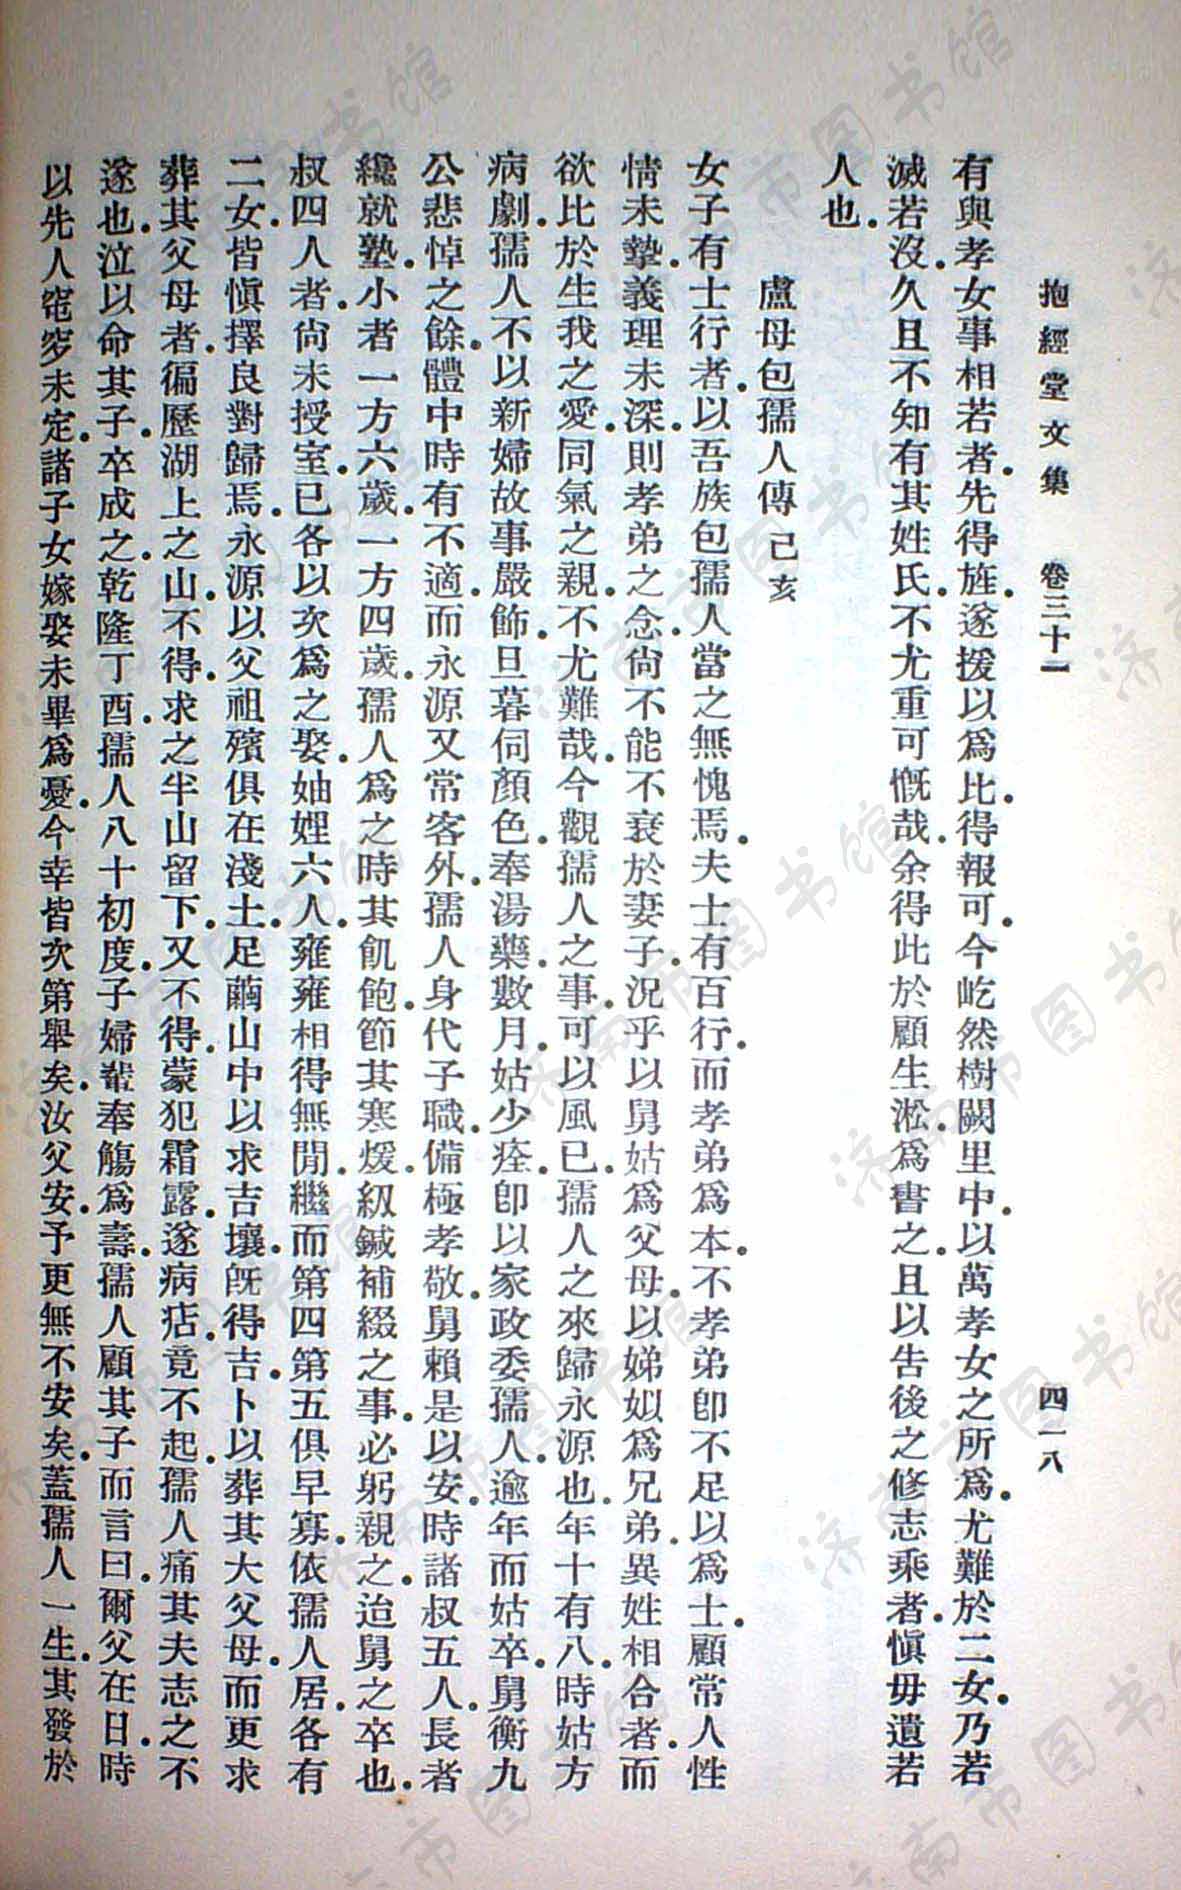 抱經堂文集 卷三十一 四一八
有與孝女事相若者．先得旌．遂援以爲比．得報可．今屹然樹闕里中．以萬孝女之所爲．尤難於二女．乃若
滅若沒．久且不知有其姓氏．不尤重可慨哉．余得此於顧生淞．爲書之．且以告後之修志乘者．愼毋遺若
人也．
盧母包孺人傳 己亥
女子有士行者．以吾族包孺人當之無愧焉．夫士有百行．而孝弟爲本．不孝弟卽不足以爲士．顧常人性
情未摯．義理未深．則孝弟之念．尙不能不衰於妻子．況乎以舅姑爲父母．以娣姒爲兄弟．異姓相合者．而
欲比於生我之愛．同氣之親．不尤難哉．今觀孺人之事．可以風已．孺人之來歸永源也．年十有八．時姑方
病劇．孺人不以新婦故事嚴飾．旦暮伺顏色．奉湯藥．數月．姑少痊．卽以家政委孺人．逾年而姑卒．舅衡九
公悲悼之餘．體中時有不適．而永源又常客外．孺人身代子職．備極孝敬．舅賴是以安．時諸叔五人．長者
纔就塾．小者一方六歲．一方四歲．孺人爲之時其飢飽．節其寒煖．紉鍼補綴之事．必躬親之．迨舅之卒也．
叔四人者．尙未授室．已各以次爲之娶．妯娌六人．雍雍相得無閒．繼而第四第五俱早寡．依孺人居．各有
二女．皆愼擇良對歸焉．永源以父祖殯俱在淺土．足繭山中．以求吉壤．旣得吉卜．以葬其大父母．而更求
葬其父母者．徧歷湖上之山．不得．求之半山留下．又不得．蒙犯霜露．遂病痁．竟不起．孺人痛其夫志之不
遂也．泣以命其子．卒成之．乾隆丁酉．孺人八十初度．子婦輩奉觴爲壽．孺人顧其子而言曰．爾父在日．時
以先人窀穸未定．諸子女嫁娶未畢爲憂．今幸皆次第舉矣．汝父安．予更無不安矣．蓋孺人一生．其發於